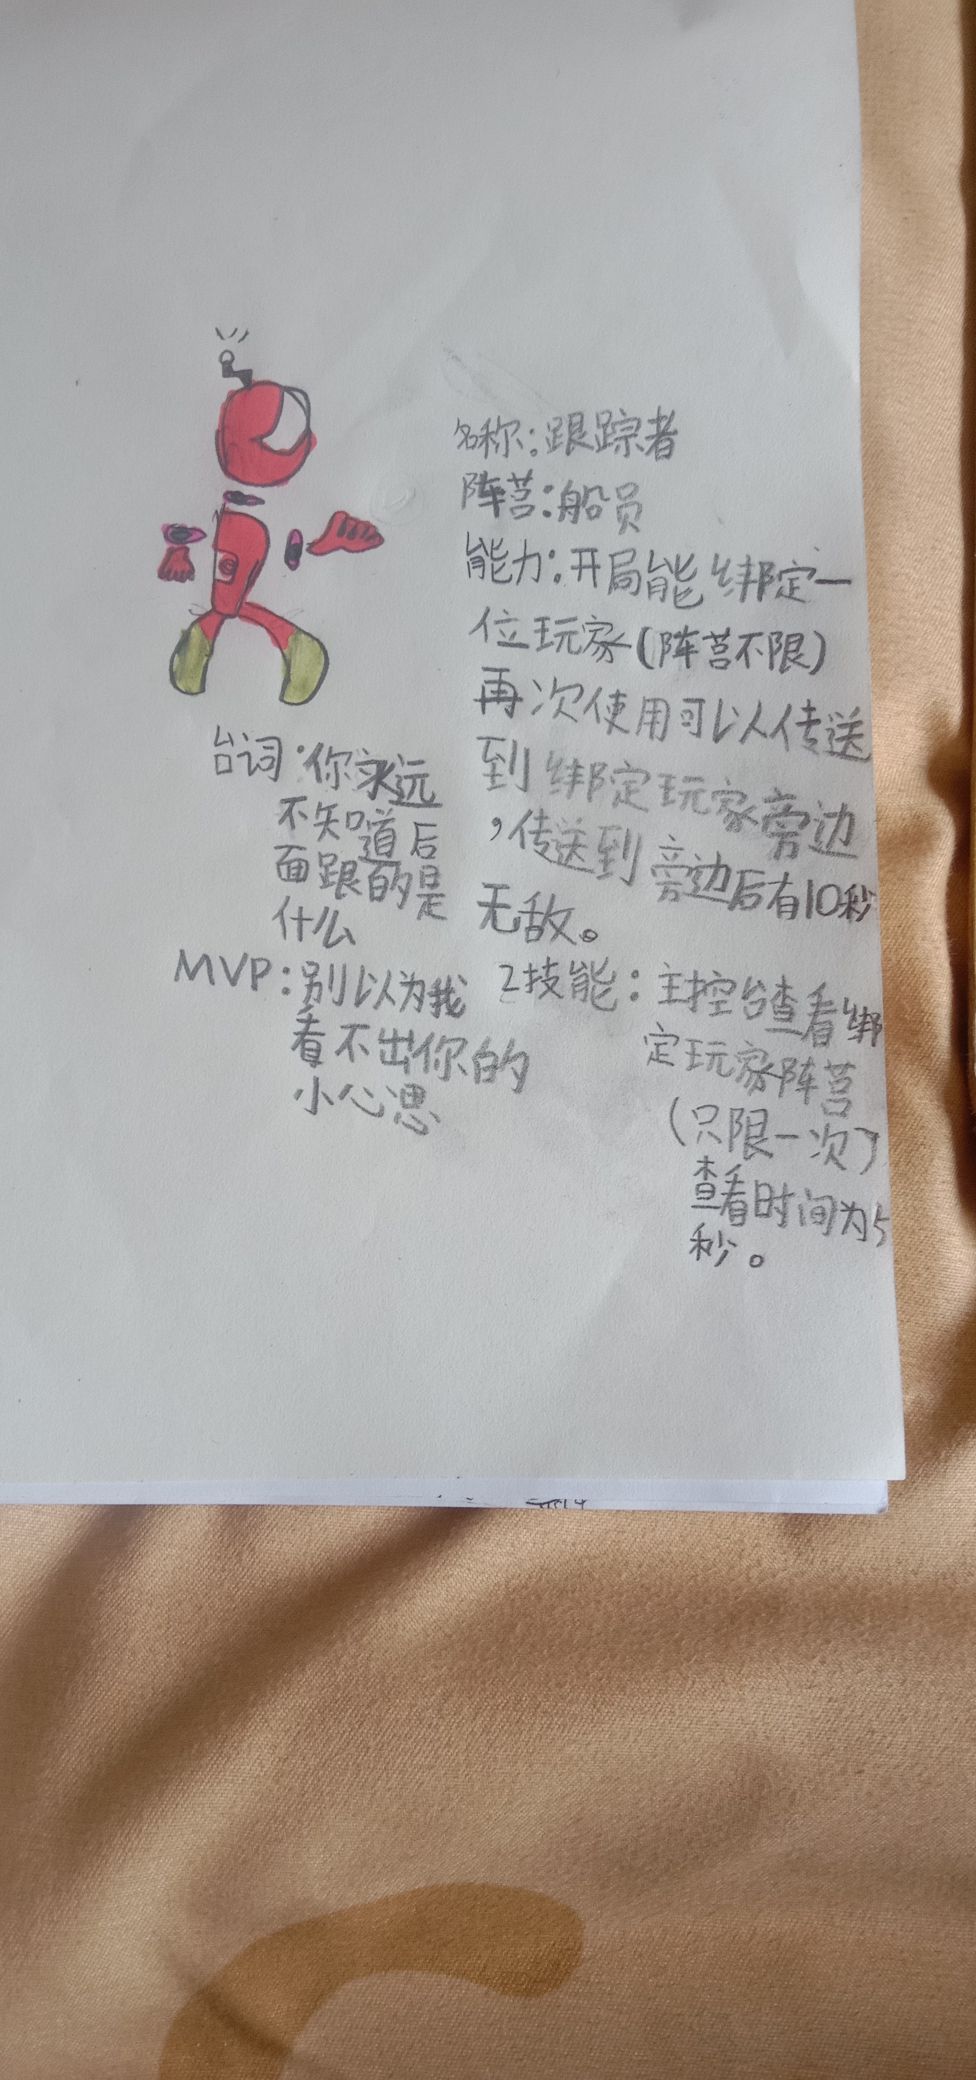 名称：跟踪者
阵营：船员
能力：开局能绑定一
位玩家(阵营不限)
再次使用可以传送
到绑定玩家旁边
，传送到旁边后有10秒
无敌。
2技能：主控台查看绑
定玩家阵营
(只限一次)
查看时间为5
秒。
台词：你永远
不知道后
面跟的是
什么
MVP：别以为我
看不出你的
小心思